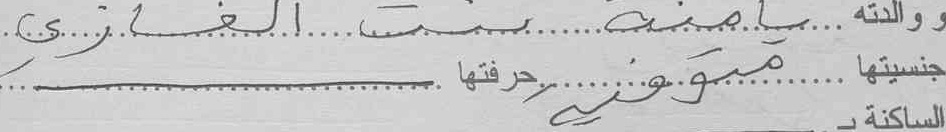 ووالدته يامنة بنت الغازي
جنسيتها متوفيه حرفتها
الساكنة بـ